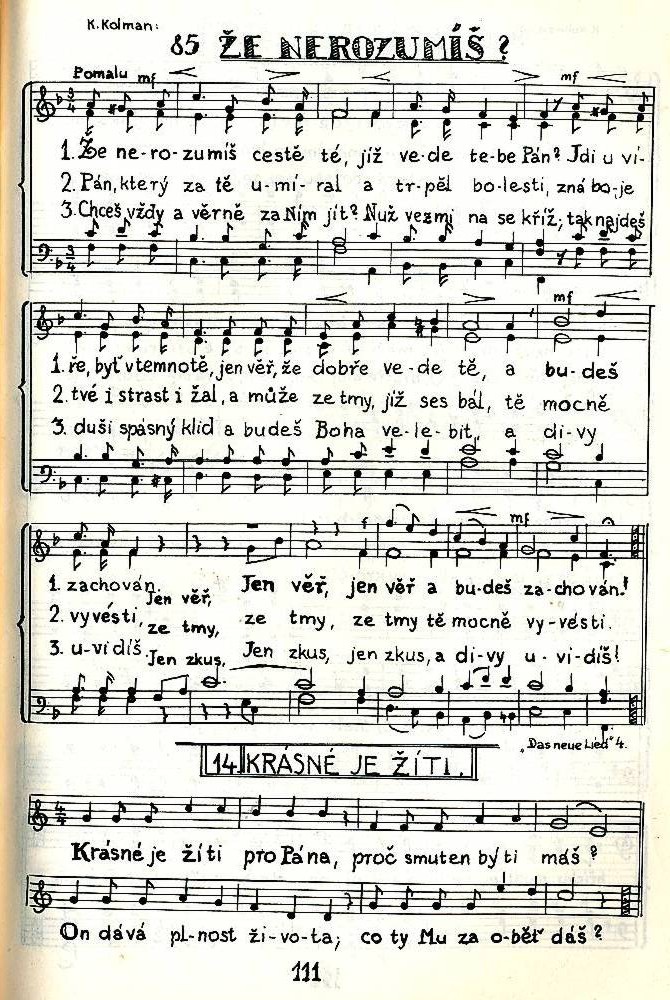 K. Kolman:
85 ŽE NEROZUMÍŠ?
Pomalu mf mf
1. Že ne-ro-zumíš cestě té, jíž ve-de te-be Pán? Jdi u ví-
2. Pán, který za tě u-mí-ral a tr-pěl bo-lesti, zná bo-je
3. Chceš vždy a věrně za Ním jít? Nuž vezmi na se kříž; tak najdeš
mf
1. ře, byť v temnotě, jen věř, že dobře ve-de tě, a bu-deš
2. tvé i strast i žal, a může ze tmy, jíž ses bál, tě mocně
3. duši spásný klid a budeš Boha ve-le-bit, a di-vy
f mf
1. zachován, Jen věř, Jen věř, jen věř a bu-deš za-chován!
2. vyvésti, ze tmy, ze tmy, ze tmy tě mocně vy-vésti.
3. u-vidíš Jen zkus, Jen zkus, jen zkus, a di-vy u-vi-díš!
"Das neue Lied" 4.
14. KRÁSNÉ JE ŽÍTI.
Krásné je žíti pro Pána, proč smuten býti máš?
On dává pl-nost ži-vo-ta; co ty Mu za o-běť dáš?
111